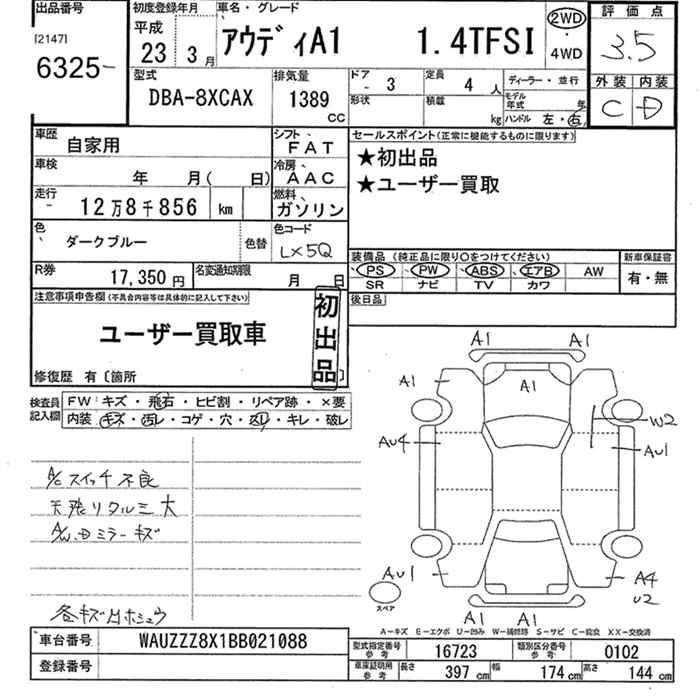 出品番号
[2147]
6325
初度登録年月
平成
23年 3月
車名・グレード
アウディA1 1.4TFSI
2WD
・
4WD
評価点
3.5
外装 内装
C D
型式
DBA-8XCAX
排気量
1389
CC
ドア - 3
定員 4人
形状
積載 kg
ディーラー・並行
モデル年式 年
ハンドル 左・右
車歴 自家用
シフト FAT
車検 年 月( 日)
冷房 AAC
走行 12万8千856 km
燃料 ガソリン
色 ダークブルー
色替
色コード LX5Q
R券 17,350円
名変通知期限 月 日
セールスポイント(正常に機能するものに限ります)
★初出品
★ユーザー買取
装備品 (純正品に限り○をつけてください)
PS PW ABS エアB AW
SR ナビ TV カワ
新車保証書
有・無
後日品
注意事項申告欄(不具合内容等は具体的に記入して下さい)
ユーザー買取車
初出品
修復歴 有〔箇所 〕
検査員記入欄
FW キズ・飛石・ヒビ割・リペア跡・×要
内装 キズ・汚レ・コゲ・穴・スリ・キレ・破レ
A/Cスイッチ不良
天張リタルミ大
キズ
各キズ
A1 A1
A1 A1 A1
W2
AU4 AU1
AU1 A4
U2
A1 A1
スペア
A-キズ E-エクボ U-凹み W-補修跡 S-サビ C-腐食 XX-交換済
車台番号 WAUZZZ8X1BB021088
登録番号
型式指定番号 参考 16723
類別区分番号 参考 0102
車庫証明用 参考 長さ 397cm 幅 174cm 高さ 144cm